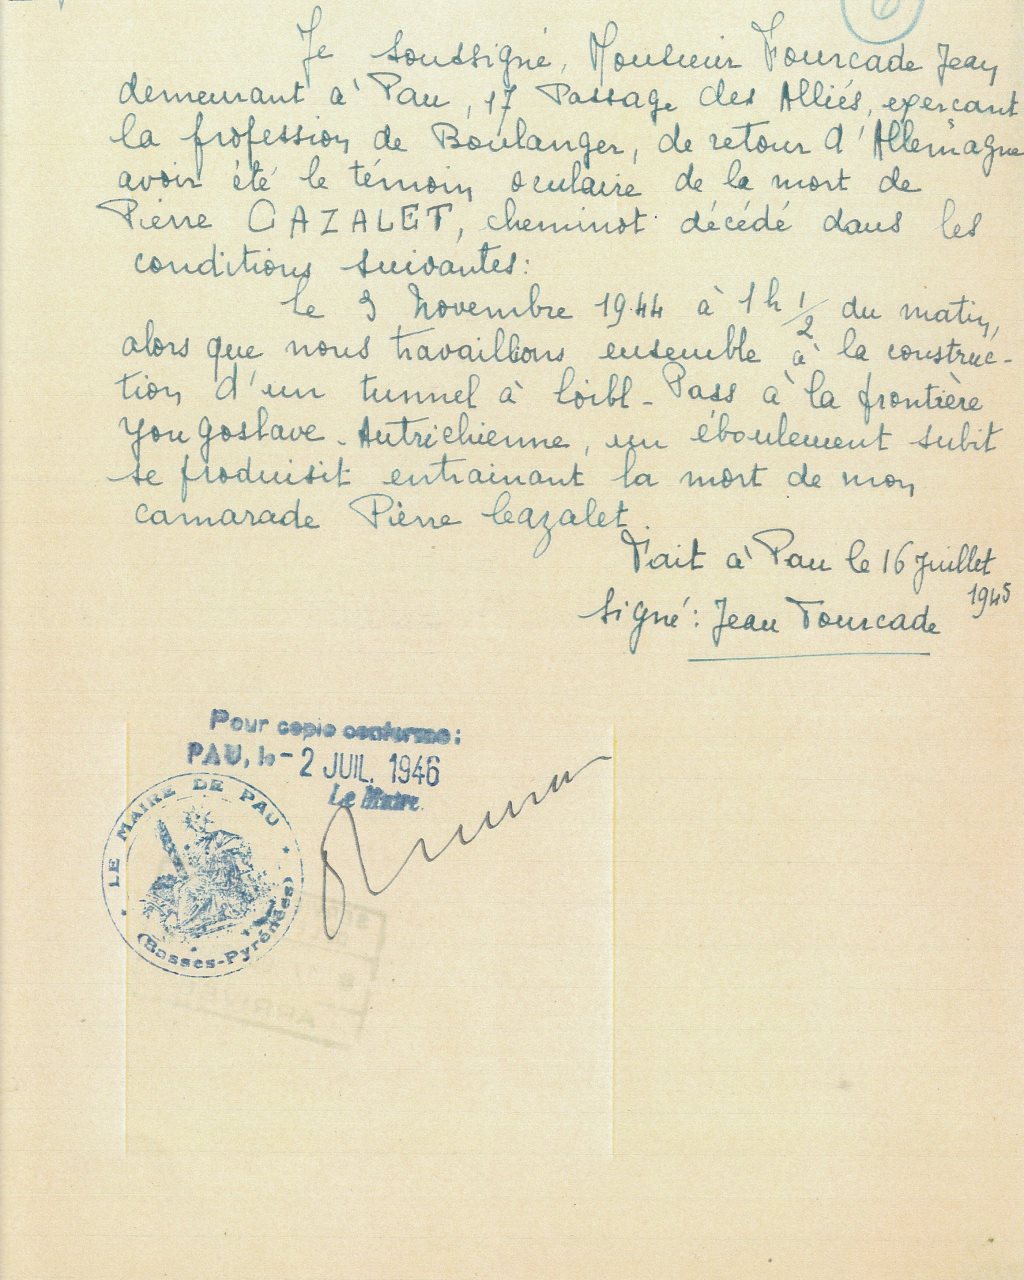 6
Je soussigné, Monsieur Fourcade Jean
demeurant à Pau, 17 Passage des Alliés, exerçant
la profession de Boulanger, de retour d'Allemagne
avoir été le témoin oculaire de la mort de
Pierre CAZALET, cheminot décédé dans les
conditions suivantes:
Le 3 Novembre 1944 à 1h 1/2 du matin,
alors que nous travaillions ensemble à la construc-
tion d'un tunnel à Loibl-Pass à la frontière
Yougoslave-Autrichienne, un éboulement subit
se produisit entrainant la mort de mon
camarade Pierre Cazalet.
Fait à Pau le 16 Juillet
1945
Signé: Jean Fourcade
Pour copie conforme:
PAU, le - 2 JUIL. 1946
Le Maire
LE MAIRE DE PAU
(Basses-Pyrénées)
ARRIVÉE